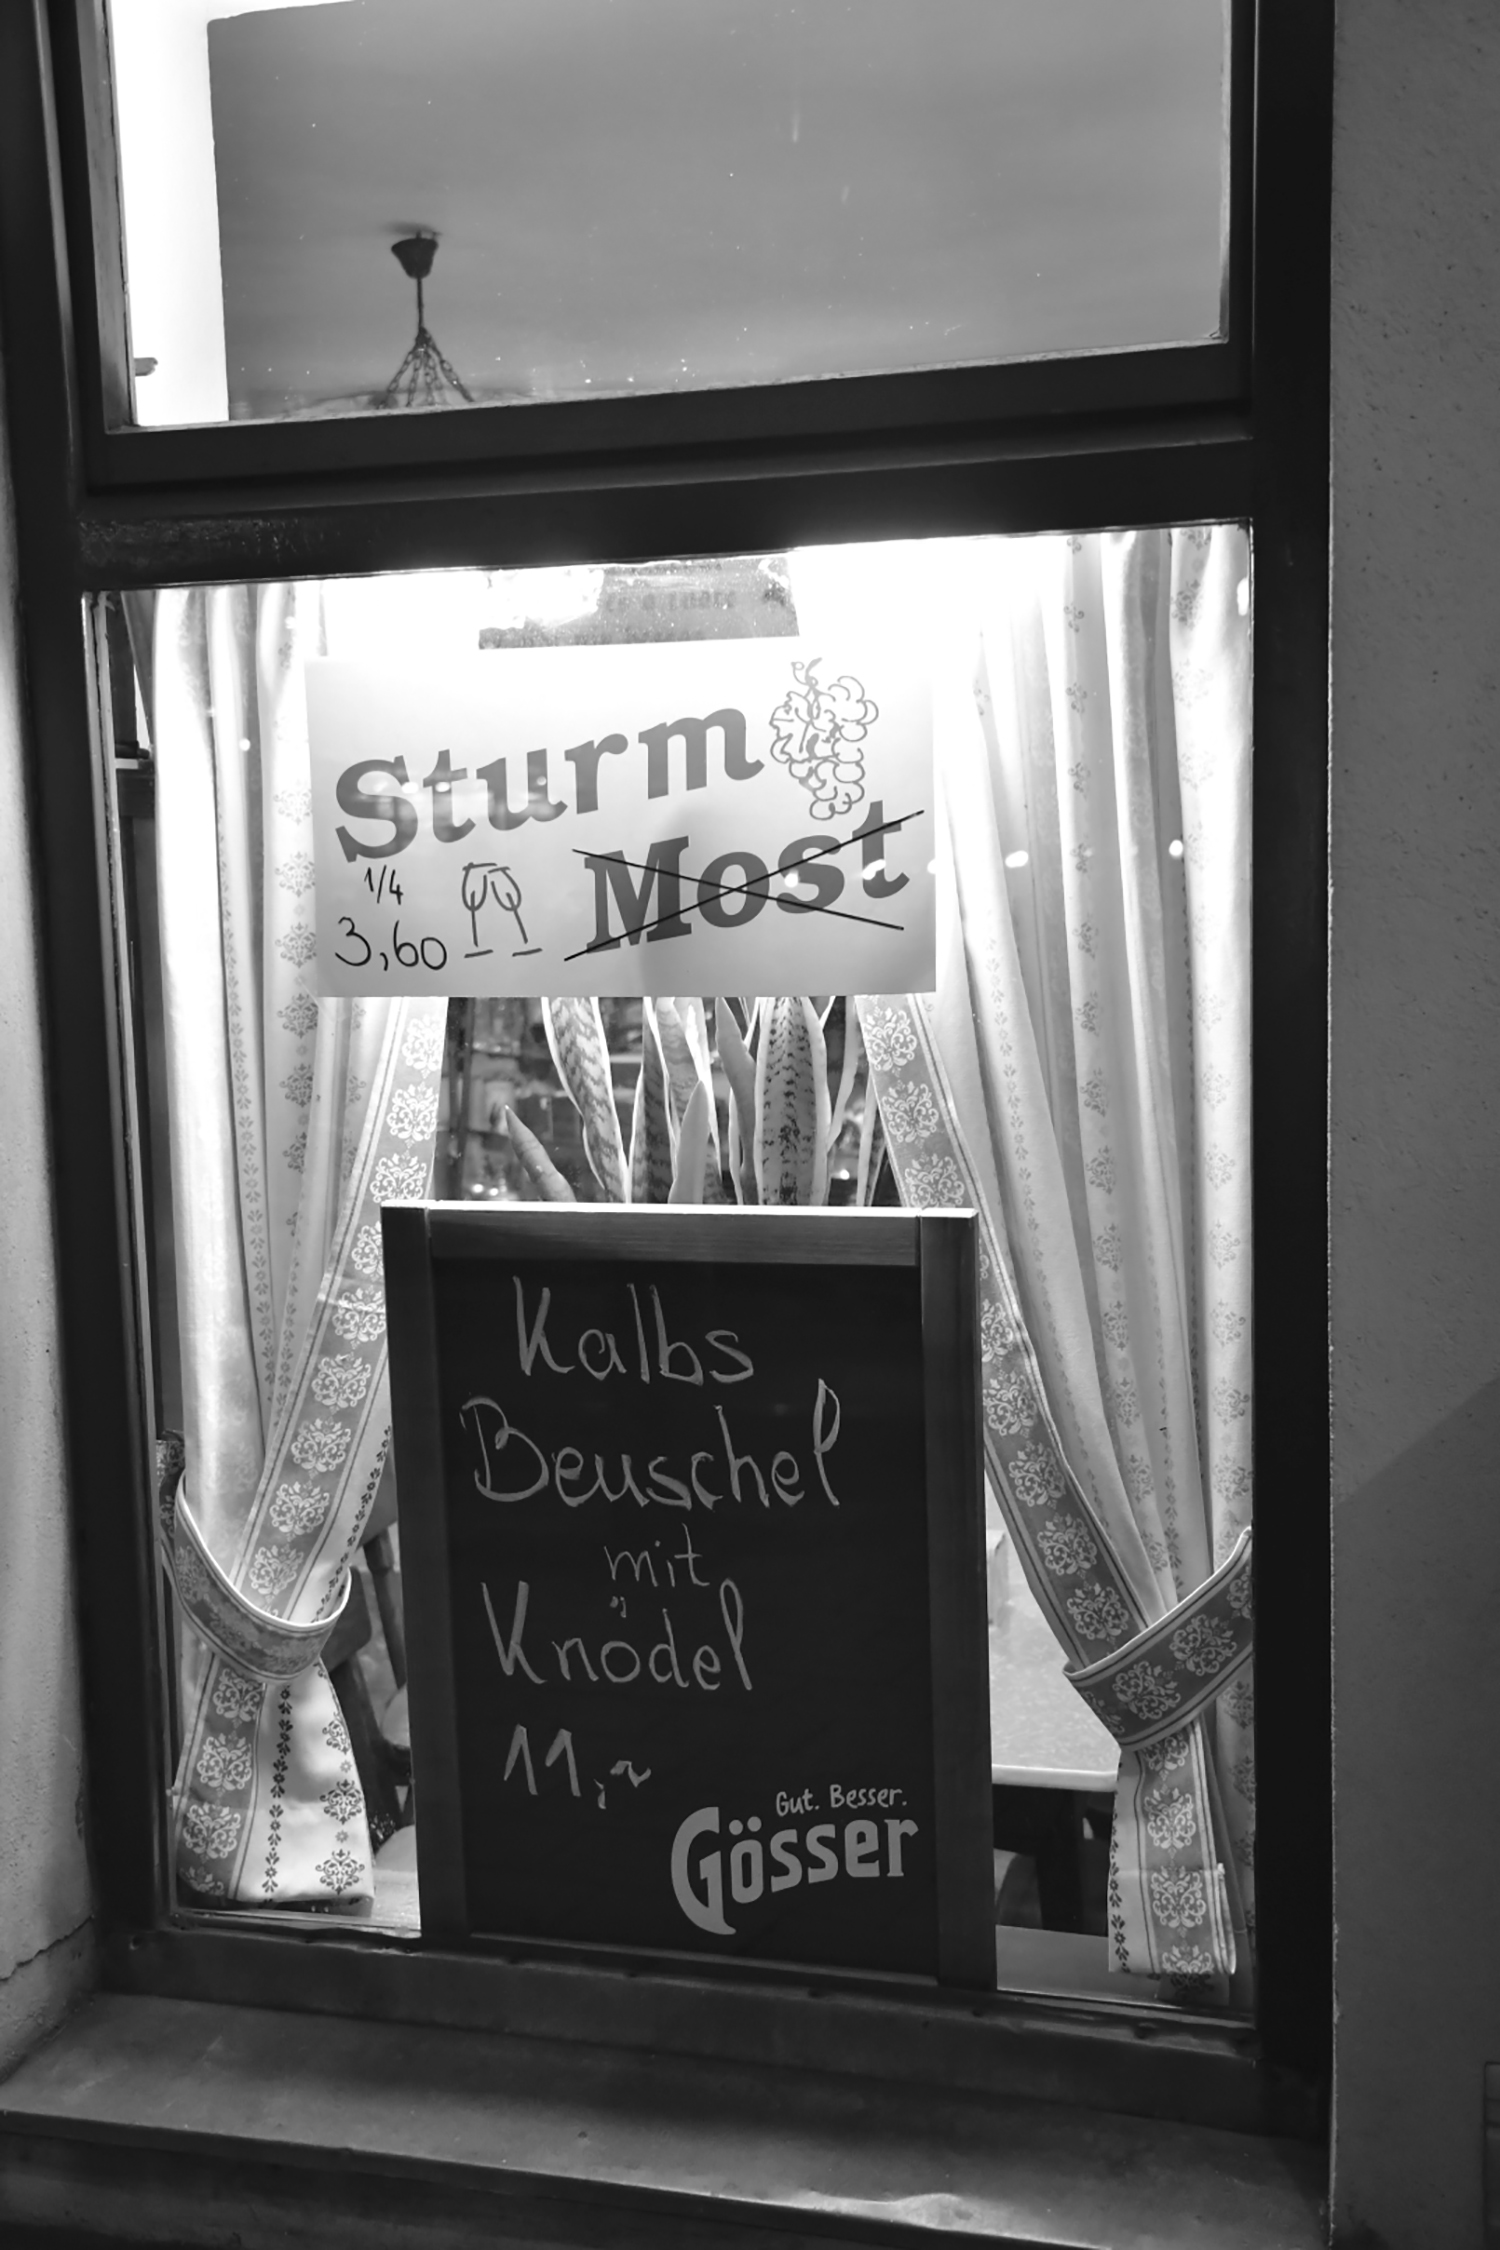 Sturm
Most
1/4
3,60
Kalbs
Beuschel
mit
Knödel
11,~
Gut. Besser.
Gösser